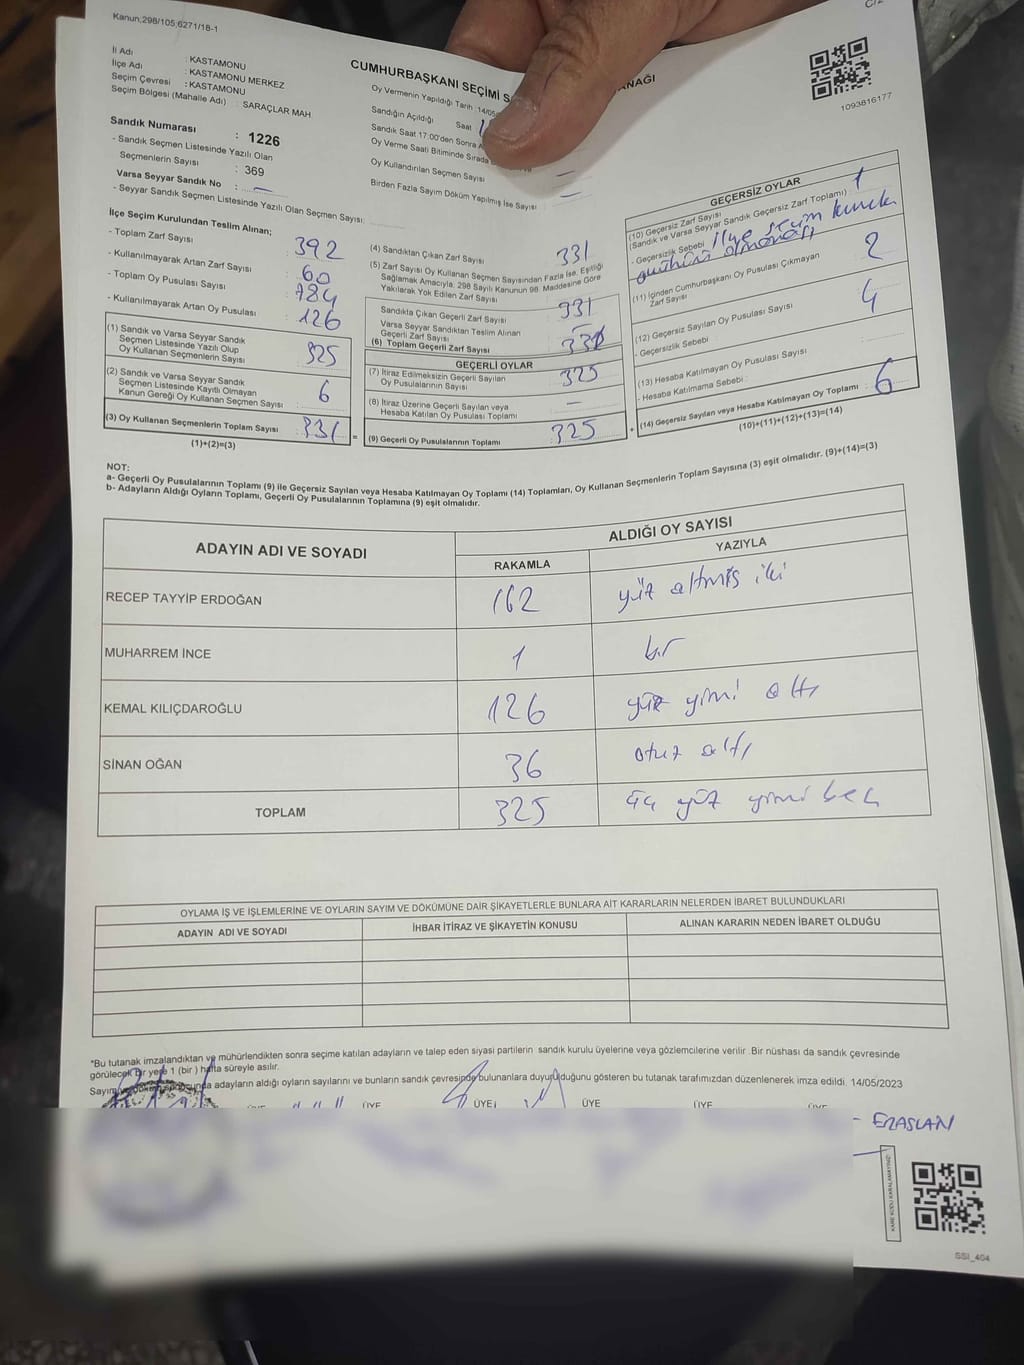 Kanun,298/105,6271/18-1
İl Adı : KASTAMONU
İlçe Adı : KASTAMONU MERKEZ
Seçim Çevresi : KASTAMONU
Seçim Bölgesi (Mahalle Adı) : SARAÇLAR MAH
CUMHURBAŞKANI SEÇİMİ S
ANAĞI
Oy Vermenin Yapıldığı Tarih : 14/05
Sandığın Açıldığı Saat
Sandık Saat 17.00'den Sonra A
Oy Verme Saati Bitiminde Sırada
Oy Kullandırılan Seçmen Sayısı –
Birden Fazla Sayım Döküm Yapılmış İse Sayısı –
1093816177
Sandık Numarası : 1226
- Sandık Seçmen Listesinde Yazılı Olan
Seçmenlerin Sayısı : 369
Varsa Seyyar Sandık No : –
- Seyyar Sandık Seçmen Listesinde Yazılı Olan Seçmen Sayısı :
İlçe Seçim Kurulundan Teslim Alınan;
- Toplam Zarf Sayısı : 392
- Kullanılmayarak Artan Zarf Sayısı : 60
- Toplam Oy Pusulası Sayısı : 784
- Kullanılmayarak Artan Oy Pusulası : 126
(1) Sandık ve Varsa Seyyar Sandık
Seçmen Listesinde Yazılı Olup
Oy Kullanan Seçmenlerin Sayısı : 325
(2) Sandık ve Varsa Seyyar Sandık
Seçmen Listesinde Kayıtlı Olmayan
Kanun Gereği Oy Kullanan Seçmen Sayısı : 6
(3) Oy Kullanan Seçmenlerin Toplam Sayısı : 331
(1)+(2)=(3)
(4) Sandıktan Çıkan Zarf Sayısı : 331
(5) Zarf Sayısı Oy Kullanan Seçmen Sayısından Fazla İse, Eşitliği
Sağlamak Amacıyla, 298 Sayılı Kanunun 98. Maddesine Göre
Yakılarak Yok Edilen Zarf Sayısı :
Sandıkta Çıkan Geçerli Zarf Sayısı : 331
Varsa Seyyar Sandıktan Teslim Alınan
Geçerli Zarf Sayısı : –
(6) Toplam Geçerli Zarf Sayısı : 330
GEÇERLİ OYLAR
(7) İtiraz Edilmeksizin Geçerli Sayılan
Oy Pusulalarının Sayısı : 325
(8) İtiraz Üzerine Geçerli Sayılan veya
Hesaba Katılan Oy Pusulası Toplamı : –
(9) Geçerli Oy Pusulalarının Toplamı : 325
GEÇERSİZ OYLAR
(10) Geçersiz Zarf Sayısı : 1
(Sandık ve Varsa Seyyar Sandık Geçersiz Zarf Toplamı)
- Geçersizlik Sebebi : ilçe seçim kurulu
mührünün olmaması
(11) İçinden Cumhurbaşkanı Oy Pusulası Çıkmayan
Zarf Sayısı : 2
(12) Geçersiz Sayılan Oy Pusulası Sayısı : 4
- Geçersizlik Sebebi :
(13) Hesaba Katılmayan Oy Pusulası Sayısı :
- Hesaba Katılmama Sebebi :
(14) Geçersiz Sayılan veya Hesaba Katılmayan Oy Toplamı : 6
(10)+(11)+(12)+(13)=(14)
NOT:
a- Geçerli Oy Pusulalarının Toplamı (9) ile Geçersiz Sayılan veya Hesaba Katılmayan Oy Toplamı (14) Toplamları, Oy Kullanan Seçmenlerin Toplam Sayısına (3) eşit olmalıdır. (9)+(14)=(3)
b- Adayların Aldığı Oyların Toplamı, Geçerli Oy Pusulalarının Toplamına (9) eşit olmalıdır.
ADAYIN ADI VE SOYADI
ALDIĞI OY SAYISI
RAKAMLA YAZIYLA
RECEP TAYYİP ERDOĞAN 162 yüz altmış iki
MUHARREM İNCE 1 bir
KEMAL KILIÇDAROĞLU 126 yüz yirmi altı
SİNAN OĞAN 36 otuz altı
TOPLAM 325 üç yüz yirmi beş
OYLAMA İŞ VE İŞLEMLERİNE VE OYLARIN SAYIM VE DÖKÜMÜNE DAİR ŞİKAYETLERLE BUNLARA AİT KARARLARIN NELERDEN İBARET BULUNDUKLARI
ADAYIN ADI VE SOYADI İHBAR İTİRAZ VE ŞİKAYETİN KONUSU ALINAN KARARIN NEDEN İBARET OLDUĞU
*Bu tutanak imzalandıktan ve mühürlendikten sonra seçime katılan adayların ve talep eden siyasi partilerin sandık kurulu üyelerine veya gözlemcilerine verilir .Bir nüshası da sandık çevresinde
görülecek bir yere 1 (bir ) hafta süreyle asılır.
adayların aldığı oyların sayılarını ve bunların sandık çevresinde bulunanlara duyurulduğunu gösteren bu tutanak tarafımızdan düzenlenerek imza edildi. 14/05/2023
ÜYE ÜYE ÜYE ÜYE ÜYE ÜYE
ERASLAN
KARE KODU KARALAMAYINIZ!
SSI_404